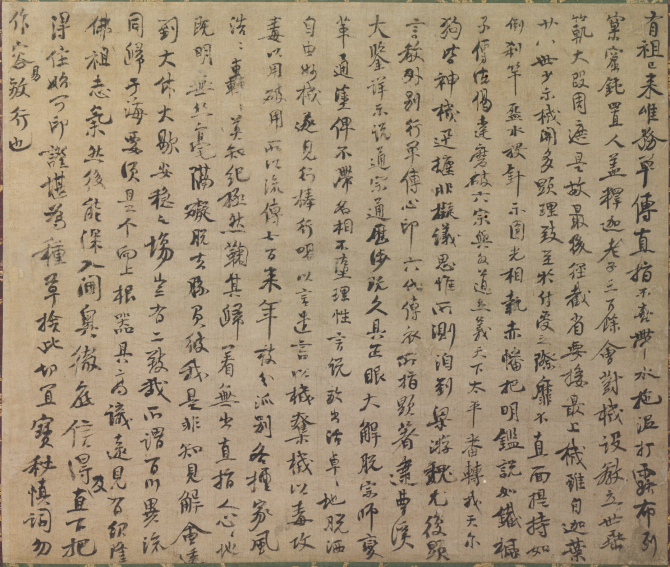 有祖已来唯務單傳直指不喜帶水拖泥打露布列
窠窟鈍置人盖釋迦老子三百餘會對機設教立世垂
範大段周遮是故最後徑截省要接最上機雖自迦葉
廿八世少示機關多顯理致至於付受之際靡不直面提持如
倒刹竿盋水投針示圓光相執赤幡把明鑑說如鐵橛
子傳法偈達磨破六宗與外道立義天下太平番轉我天尓
狗皆神機迅捷非擬議思惟所測洎到梁游魏尤復顯
言教外別行單傳心印六代傳衣所指顯著逮曹溪
大鑒詳示說通宗通歷涉既久具正眼大解脫宗師變
革通塗俾不滯名相不墮理性言說放出活卓〻地脫洒
自由妙機遂見行棒行喝以言遣言以機奪機以毒攻
毒以用破用所以流傳七百来年枝分派別各擅家風
浩〻轟〻莫知紀極然鞠其歸著無出直指人心〻地
既明無絲毫隔礙脫去勝負彼我是非知見解會透
到大休大歇安穩之場豈有二致哉所謂百川異流
同歸于海要須是个向上根器具高識遠見有紹隆
佛祖志氣然後能深入閫奧徹底信得及直下把
得住始可印證堪為種草捨此切宜寶秘慎詞勿
作容易放行也